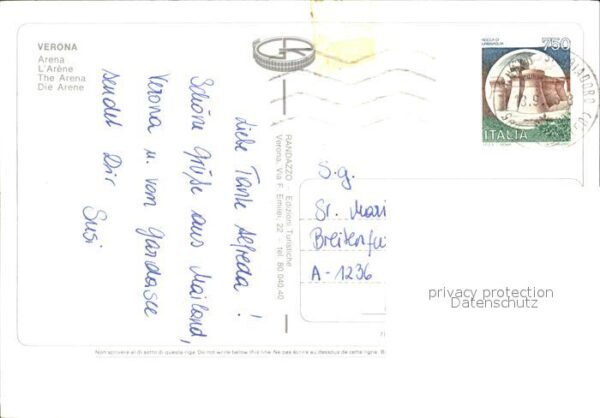 VERONA
Arena
L'Arène
The Arena
Die Arene
Liebe Tante Alfreda!
Schöne Grüße aus Mailand,
Verona u. vom Gardasee
sendet Dir Susi
RANDAZZO Edizioni Turistiche
Verona, Via F. Emilei, 22 - tel. 80 040 40
ROCCA DI
URBISAGLIA
750
ITALIA
S.g.
Sr. Mari
Breitenfur
A-1236
privacy protection
Datenschutz
Non scrivere al di sotto di questa riga. Do not write below this line. Ne pas écrire au dessous de cette ligne.